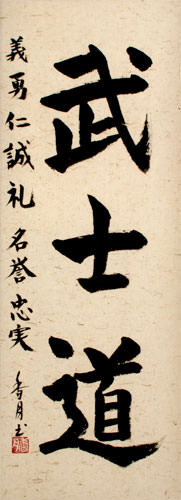 武士道
義勇仁誠礼 名誉 忠実
香月書